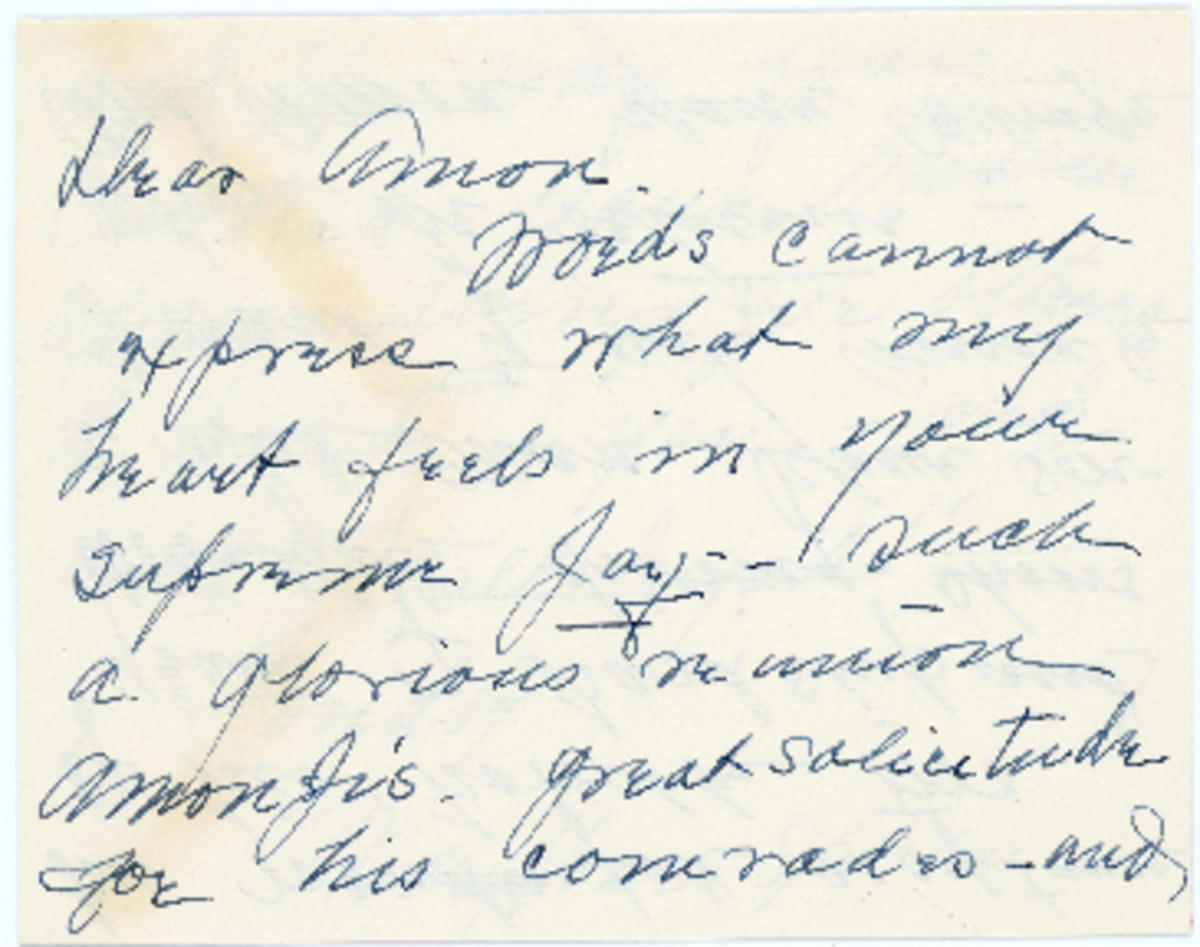 Dear Amon.
Words cannot
express what my
heart feels in your
supreme Joy - such
a glorious reunion
Amon Jr's. great solicitude
for his comrades - and